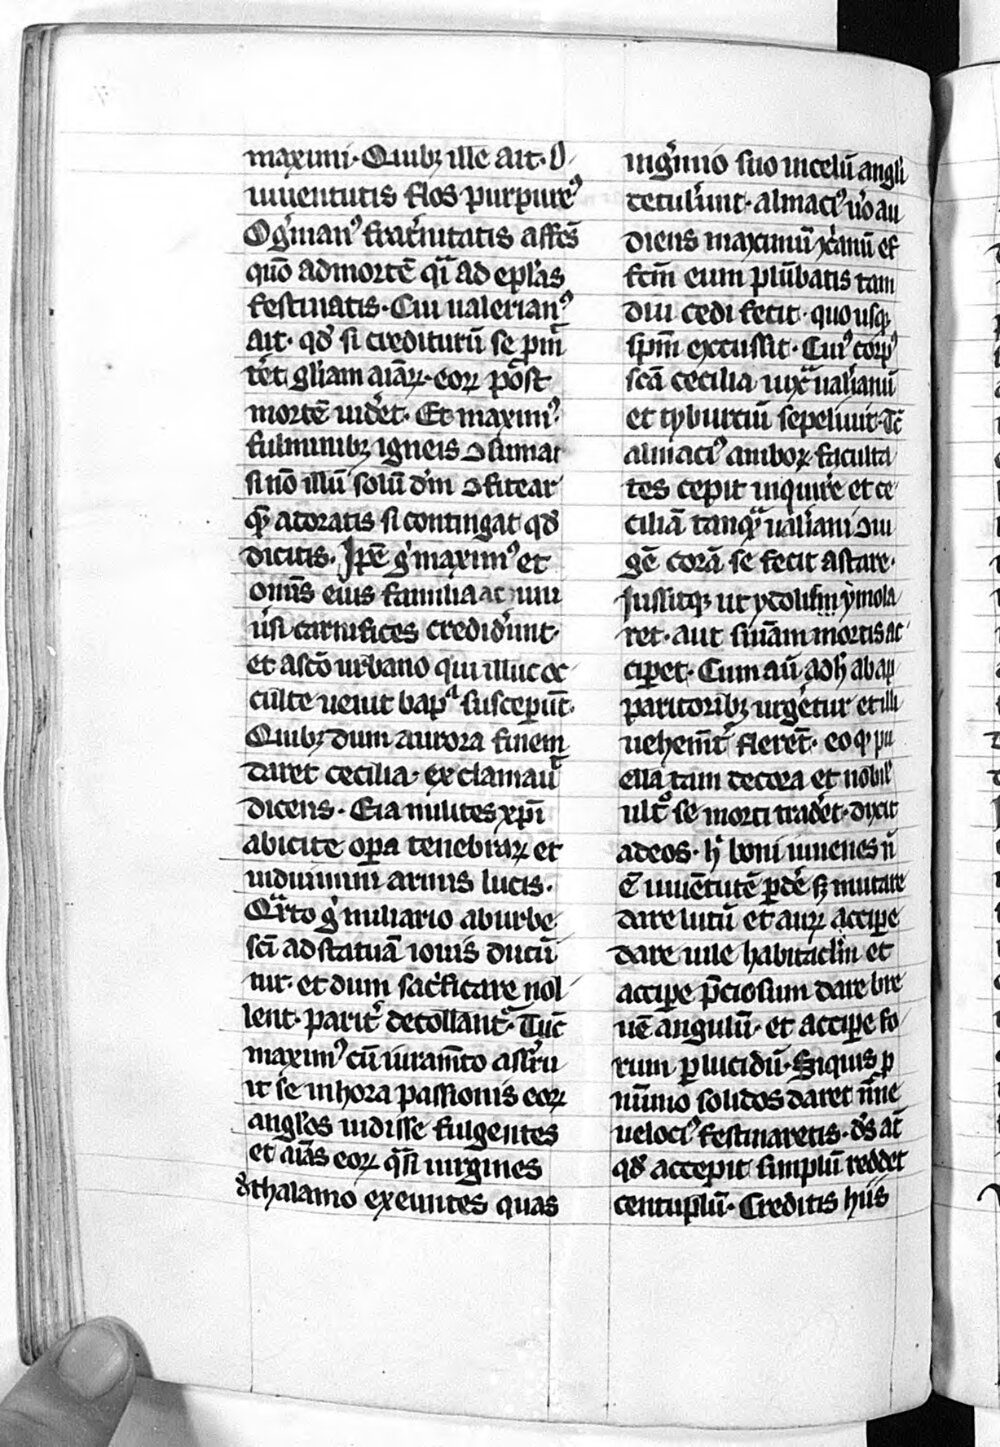 maximi. Quibꝫ ille ait. O
iuuentutis flos purpureꝰ
O gͥmanꝰ frat̾nitatis affcs̄
quō ad mortē qͣi ad epl̾as
festinatis. Cui ualerianꝰ
ait. qđ si crediturū se pͣm
tet̾ gl̾iam aīaꝝ eoꝝ post
mortē uidet̾. Et maximꝰ
fulminibꝫ igneis ꝯsumar
si nō illū solū dm̄ ꝯfitear
qm̄ adoratis si contingat qđ
dicitis. Ip̄e gͦ maximꝰ et
om̄s eius familia ac uni
ūsi carnifices credider̄unt.
et a sc̄o urbano qui illuc oc
culte uenit bapͣ suscepūt.
Quibꝫ dum aurora finem
daret cecilia. exclamauͭ
dicens. Eia milites xp̄i
abicite oꝑa tenebraꝝ et
induimini armis lucis.
Qͣrto gͦ miliario ab urbe
sc̄i ad statuā iouis ducū
tur. et dum sac̾ficare nol
lent. parit̾ decollant̾. Tūc
maximꝰ cū iuram̄to astru
it se in hora passionis eoꝝ
angl̾os uidisse fulgentes
et aīas eoꝝ qͣsi uirgines
đ thalamo exeuntes quas
in gͤmio suo in celū angl̾i
tetuler̄unt. almaciꝰ u̾o au
diens maximū xp̄ianū ef
fc̄m eum plūbatis tam
diu cedi fecit. quo usqꝫ
sp̄m excussit. Cuiꝰ corpꝰ
sc̄a cecilia iuxͣ ual̾ianū
et tyburciū sepeliuit. Tc̄
almaciꝰ amboꝝ faculta
tes cepit inquire̾ et ce
ciliā tanqͣ ual̾iani ꝯiu
gē corā se fecit astare.
Iussitqꝫ ut ydolis ymola
ret. aut sn̄iam mortis ac
ciꝑet. Cum aū ad h̄ ab ap
paritoribꝫ urget̾ur et illi
uehem̄t̾ flerēt. eo qꝫ pu
ella tam decora et nobil̾
ultͦ se morti tradet̾. dixit
ad eos. hͥ boni iuuenes n̄
ē iuuētutē ꝑde̾ sꝫ mutare
dare lutū et auꝝ acciꝑe
dare uile habitacl̄m et
acciꝑe p̄ciosum dare bre
uē angulū. et acciꝑe fo
rum ꝑlucidū. Siquis ꝑ
nūmo solidos daret nn̄e
uelociꝰ festinaretis. ds̄ at̄
qđ accepit simplū reddet
centuplū. Creditis hiis